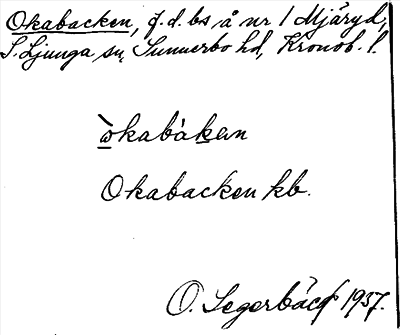 Okabacken, f.d. bs å nr 1 Mjäryd,
S. Ljunga sn, Sunnerbo hd, Kronob. l.
òkabàkən
Okabacken kb.
O. Segerbäck 1937.